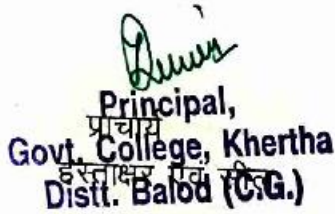 Principal,
प्राचार्य
Govt. College, Khertha
हस्ताक्षर एवं सील
Distt. Balod (C.G.)